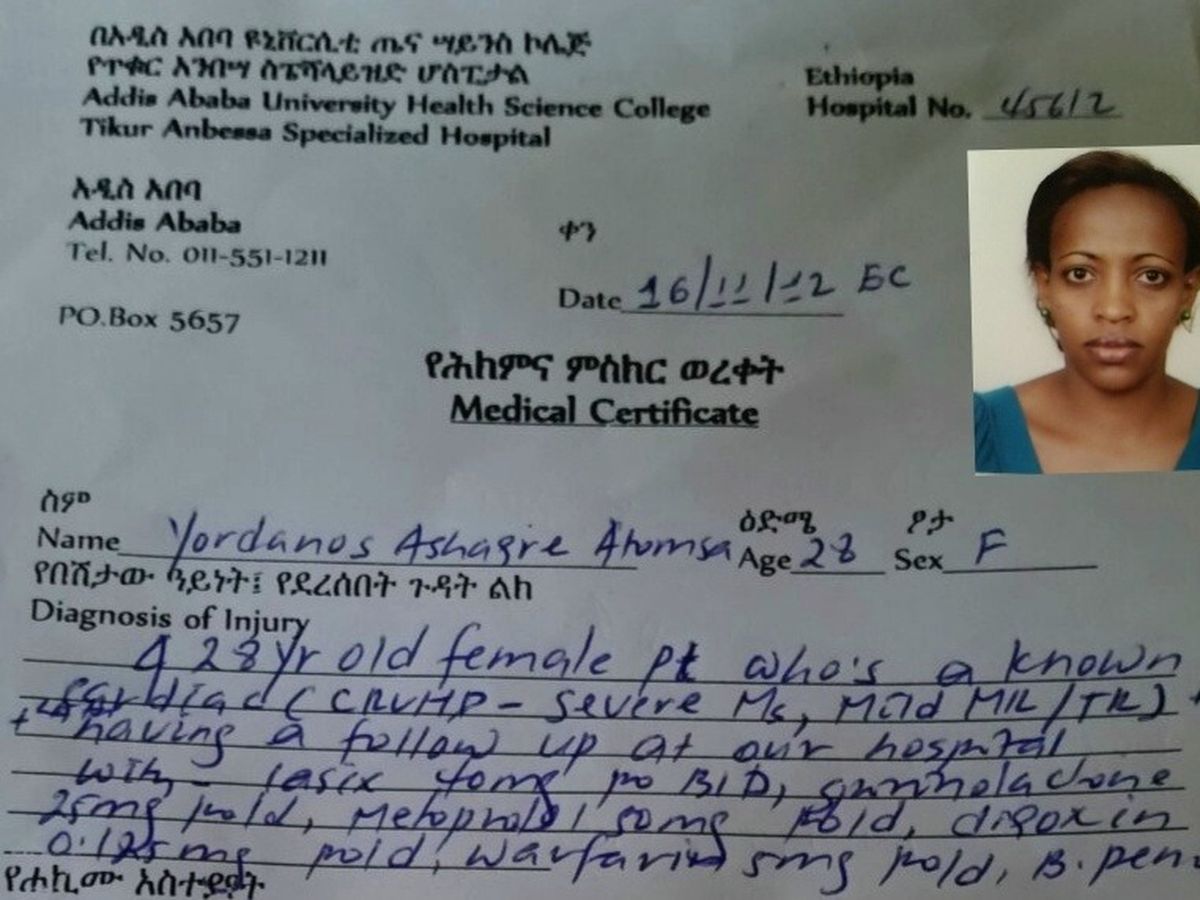 በአዲስ አበባ ዩኒቨርሲቲ ጤና ሣይንስ ኮሌጅ
የጥቁር አንበሣ ስፔሻላይዝድ ሆስፒታል
Addis Ababa University Health Science College
Tikur Anbessa Specialized Hospital
Ethiopia
Hospital No. 45612
አዲስ አበባ
Addis Ababa
Tel. No. 011-551-1211
PO.Box 5657
ቀን
Date 16/11/12 EC
የሕክምና ምስክር ወረቀት
Medical Certificate
ስም ዕድሜ ፆታ
Name Yordanos Ashagre Atomsa Age 28 Sex F
የበሽታው ዓይነት፤ የደረሰበት ጉዳት ልክ
Diagnosis of Injury
A 28 yr old female pt who's a known
cardiac (CRVHD - severe Ms, Mild MR/TR) +
+ having a follow up at our hospital
with - lasix 40mg po BID,
25mg po/d, Metoprolol 50mg po/d, digoxin
0.125mg po/d, warfarin 5mg po/d, B. pen
የሐኪሙ አስተያየት